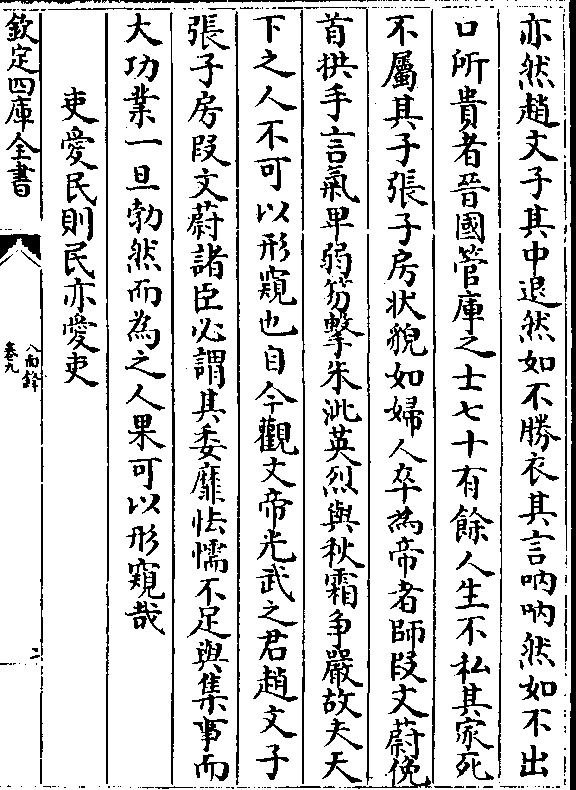 亦然趙文子其中退然如不勝衣其言吶吶然如不出
口所貴者晉國管庫之士七十有餘人生不私其家死
不屬其子張子房狀貌如婦人卒為帝者師段文蔚俛
首拱手言氣卑弱笏擊朱泚英烈與秋霜争嚴故夫天
下之人不可以形窺也自今觀文帝光武之君趙文子
張子房段文蔚諸臣必謂其委靡怯懦不足與集事而
大功業一旦勃然而為之人果可以形窺哉
吏愛民則民亦愛吏
欽定四庫全書
八面鋒
卷九
二